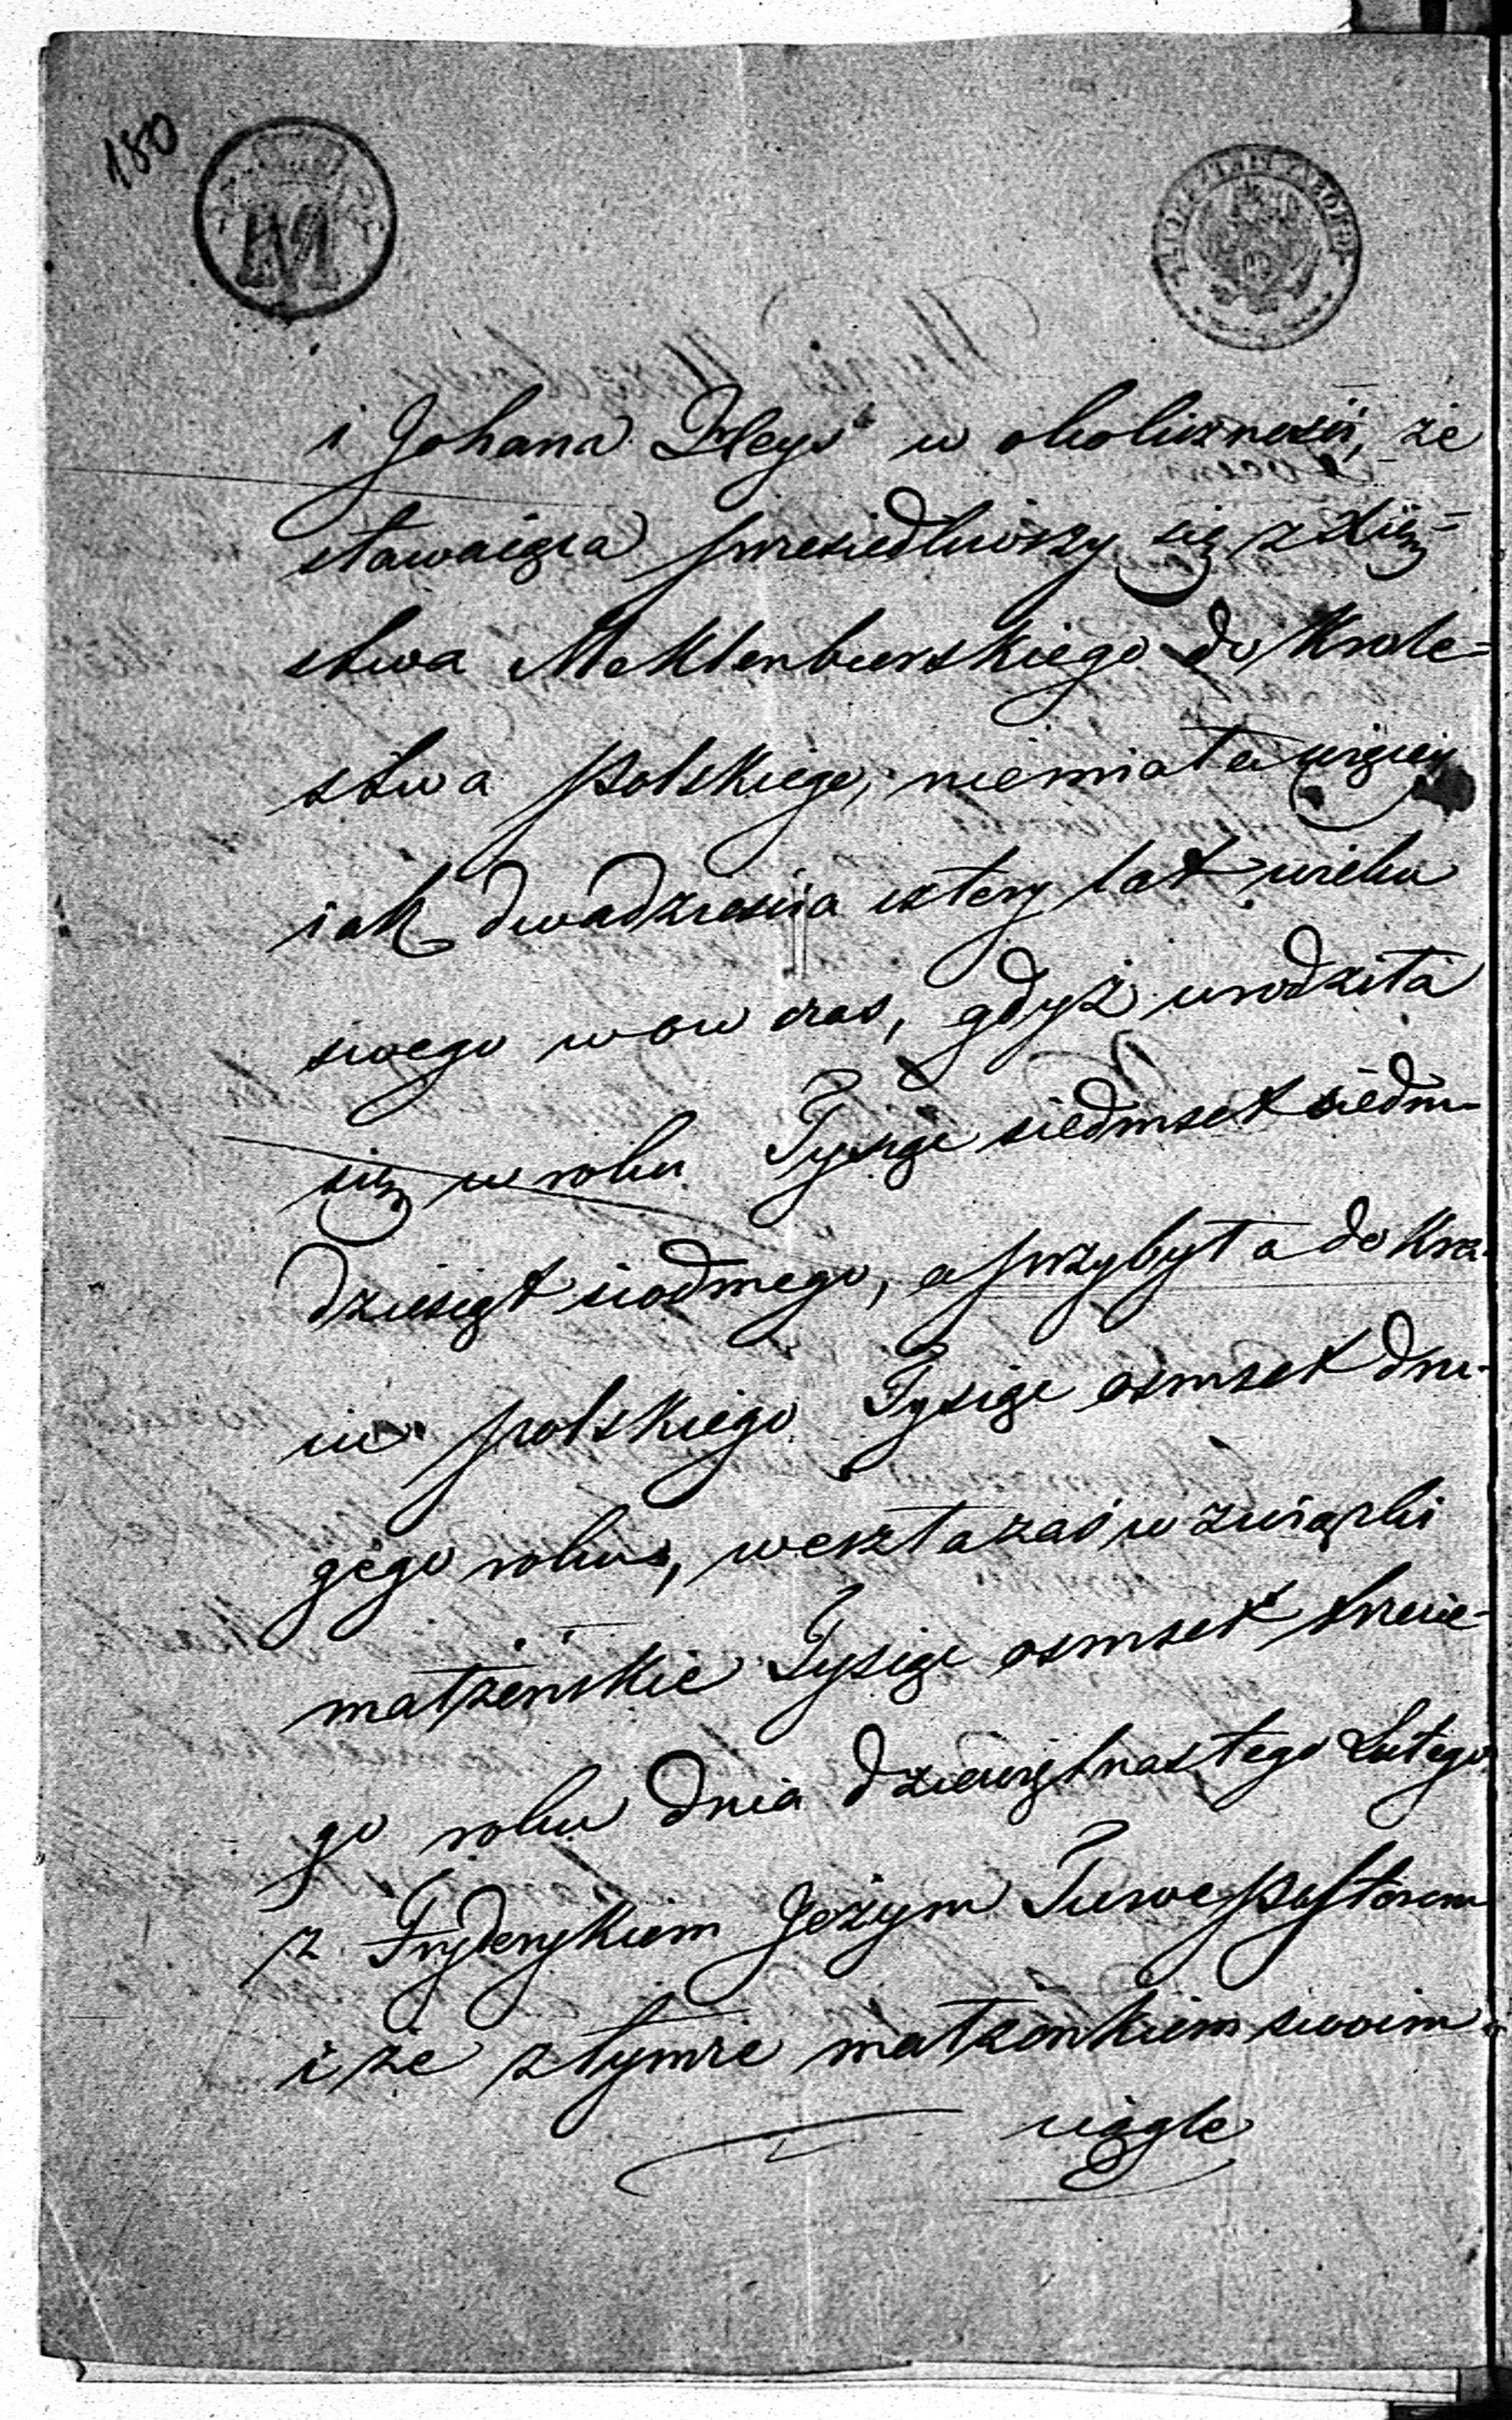 180
M
i Johana w okoliczności, że
stawaiąca przesiedliwszy się z Xię=
stwa Meklenburskiego do Krole=
stwa polskiego, niemiała więcey
iak dwadzieścia cztery lat wieku
swego wow czas, gdyż urodziła
się w roku Tysiąc siedmset siedm-
dziesiąt siodmego, a przybyła do Kra-
iu polskiego Tysiąc osmset dru-
giego roku, weszła zaś w związki
małżeńskie Tysiąc osmset trzecie-
go roku dnia dziewiętnastego Lutego
z Fryderykiem Jeżym Pastorem
i że z tymże małżonkiem swoim
ciągle